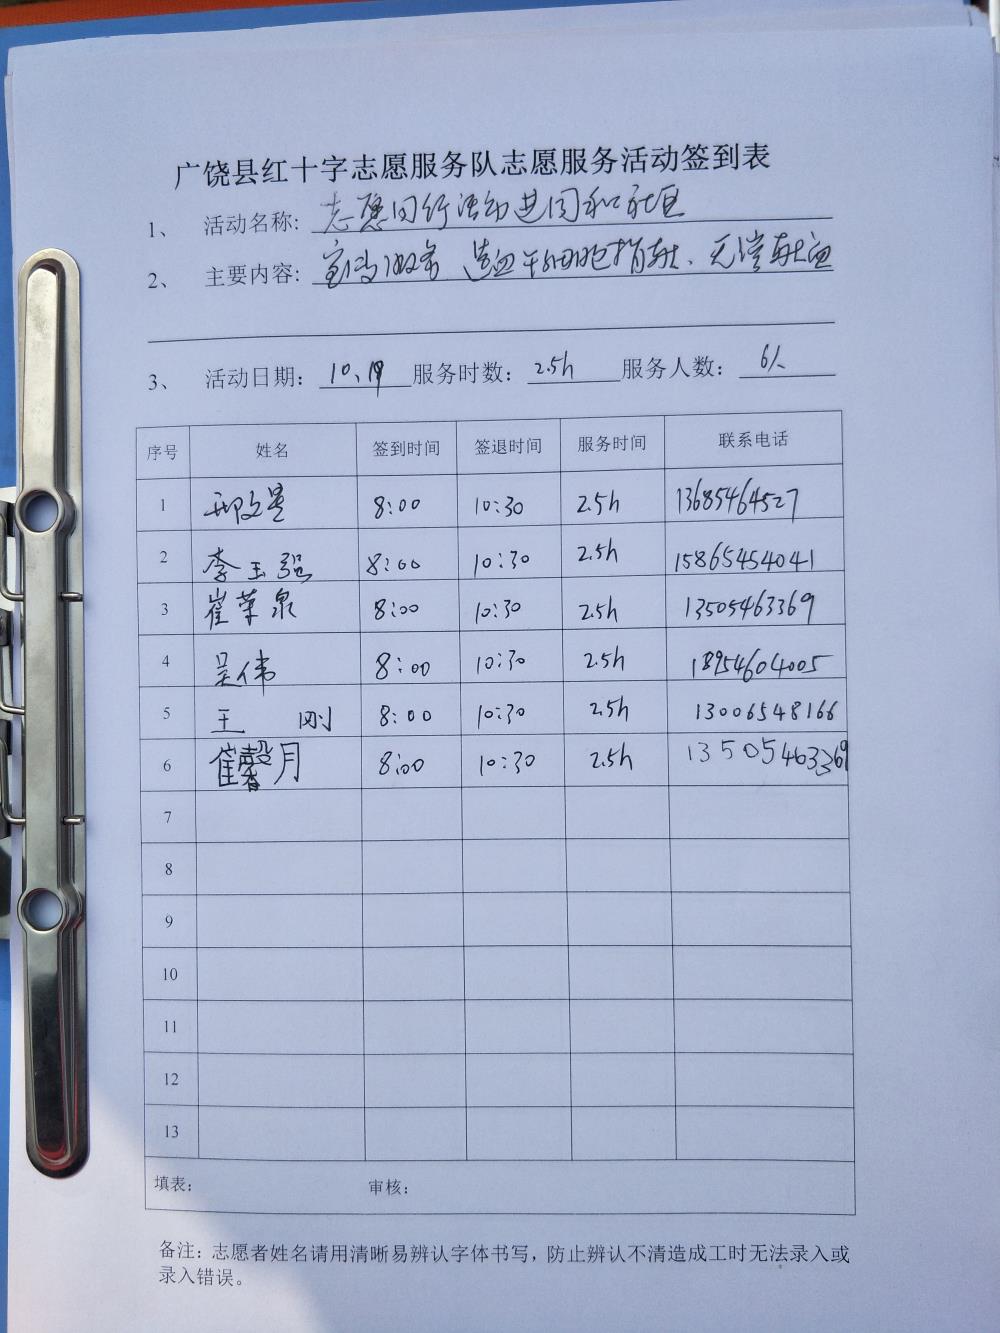 广饶县红十字志愿服务队志愿服务活动签到表
1、 活动名称: 志愿同行活动进同和社区
2、 主要内容: 宣传服务 造血干细胞捐献、无偿献血
3、 活动日期: 10、19 服务时数: 2.5h 服务人数: 6人
序号 姓名 签到时间 签退时间 服务时间 联系电话
1 邢文星 8:00 10:30 2.5h 13685464527
2 李玉强 8:00 10:30 2.5h 15865454041
3 崔荣泉 8:00 10:30 2.5h 13505463369
4 吴伟 8:00 10:30 2.5h 18954604005
5 王 刚 8:00 10:30 2.5h 13006548166
6 崔馨月 8:00 10:30 2.5h 13505463369
7
8
9
10
11
12
13
填表: 审核:
备注: 志愿者姓名请用清晰易辨认字体书写，防止辨认不清造成工时无法录入或
录入错误。